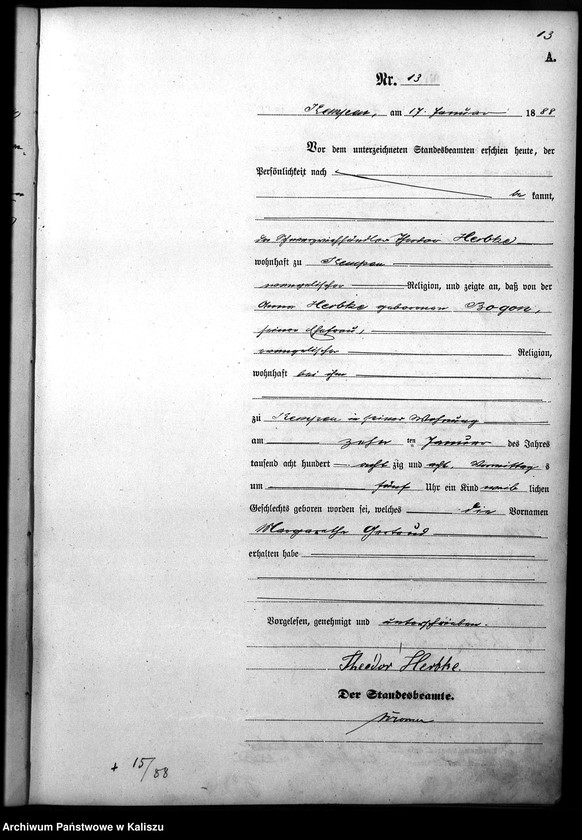 13
A.
Nr. 13
Kempen, am 17. Januar 1888
Vor dem unterzeichneten Standesbeamten erschien heute, der
Persönlichkeit nach
be kannt,
der Theodor Herbke
wohnhaft zu Kempen
evangelischer Religion, und zeigte an, daß von der
Anna Herbke geborenen Bogon,
seiner Ehefrau,
evangelischer Religion,
wohnhaft bei ihm
zu Kempen in seiner Wohnung
am zehn ten Januar des Jahres
tausend acht hundert acht zig und acht, Vormittag s
um fünf Uhr ein Kind weib lichen
Geschlechts geboren worden sei, welches die Vornamen
Margarethe Gertrud
erhalten habe
Vorgelesen, genehmigt und unterschrieben.
Theodor Herbke.
Der Standesbeamte.
+ 15/88
Archiwum Państwowe w Kaliszu